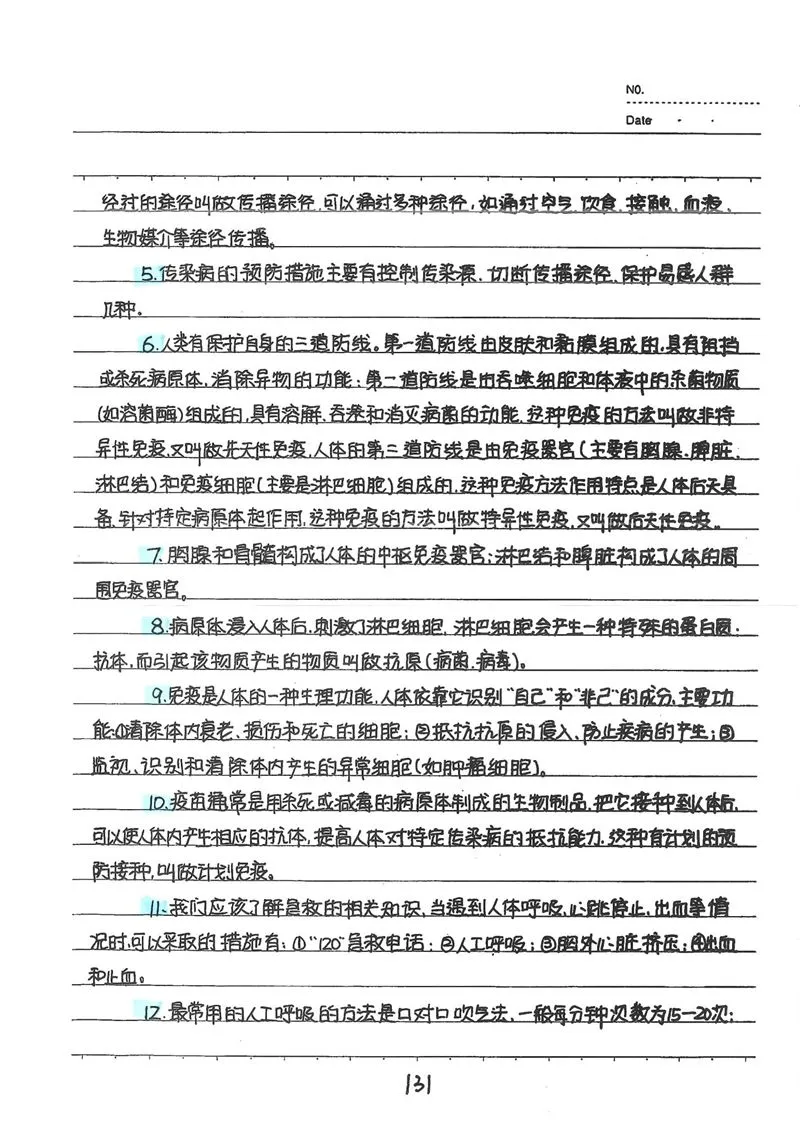 NO.
Date · ·
经过的途径叫做传播途径,可以通过多种途径,如通过空气、饮食、接触、血液、
生物媒介等途径传播。
5.传染病的预防措施主要有控制传染源、切断传播途径、保护易感人群
几种.
6.人类有保护自身的三道防线。第一道防线由皮肤和黏膜组成的,具有阻挡
或杀死病原体,消除异物的功能;第二道防线是由吞噬细胞和体液中的杀菌物质
(如溶菌酶)组成的,具有溶解、吞噬和消灭病菌的功能,这种免疫的方法叫做非特
异性免疫,又叫做先天性免疫,人体的第三道防线是由免疫器官(主要有胸腺、脾脏、
淋巴结)和免疫细胞(主要是淋巴细胞)组成的,这种免疫方法作用特点是人体后天具
备、针对特定病原体起作用,这种免疫的方法叫做特异性免疫,又叫做后天性免疫。
7.胸腺和骨髓构成了人体的中枢免疫器官;淋巴结和脾脏构成了人体的周
围免疫器官。
8.病原体侵入人体后,刺激了淋巴细胞,淋巴细胞会产生一种特殊的蛋白质:
抗体,而引起该物质产生的物质叫做抗原(病菌、病毒)。
9.免疫是人体的一种生理功能,人体依靠它识别"自己"和"非己"的成分,主要功
能:①清除体内衰老、损伤和死亡的细胞;②抵抗抗原的侵入、防止疾病的产生;③
监视、识别和清除体内产生的异常细胞(如肿瘤细胞)。
10.疫苗通常是用杀死或减毒的病原体制成的生物制品,把它接种到人体后,
可以使人体内产生相应的抗体,提高人体对特定传染病的抵抗能力,这种有计划的预
防接种,叫做计划免疫。
11.我们应该了解急救的相关知识,当遇到人体呼吸、心跳停止、出血等情
况时,可以采取的措施有:①"120"急救电话:②人工呼吸;③胸外心脏挤压;④出血
和止血。
12.最常用的人工呼吸的方法是口对口吹气法,一般每分钟次数为15—20次;
131